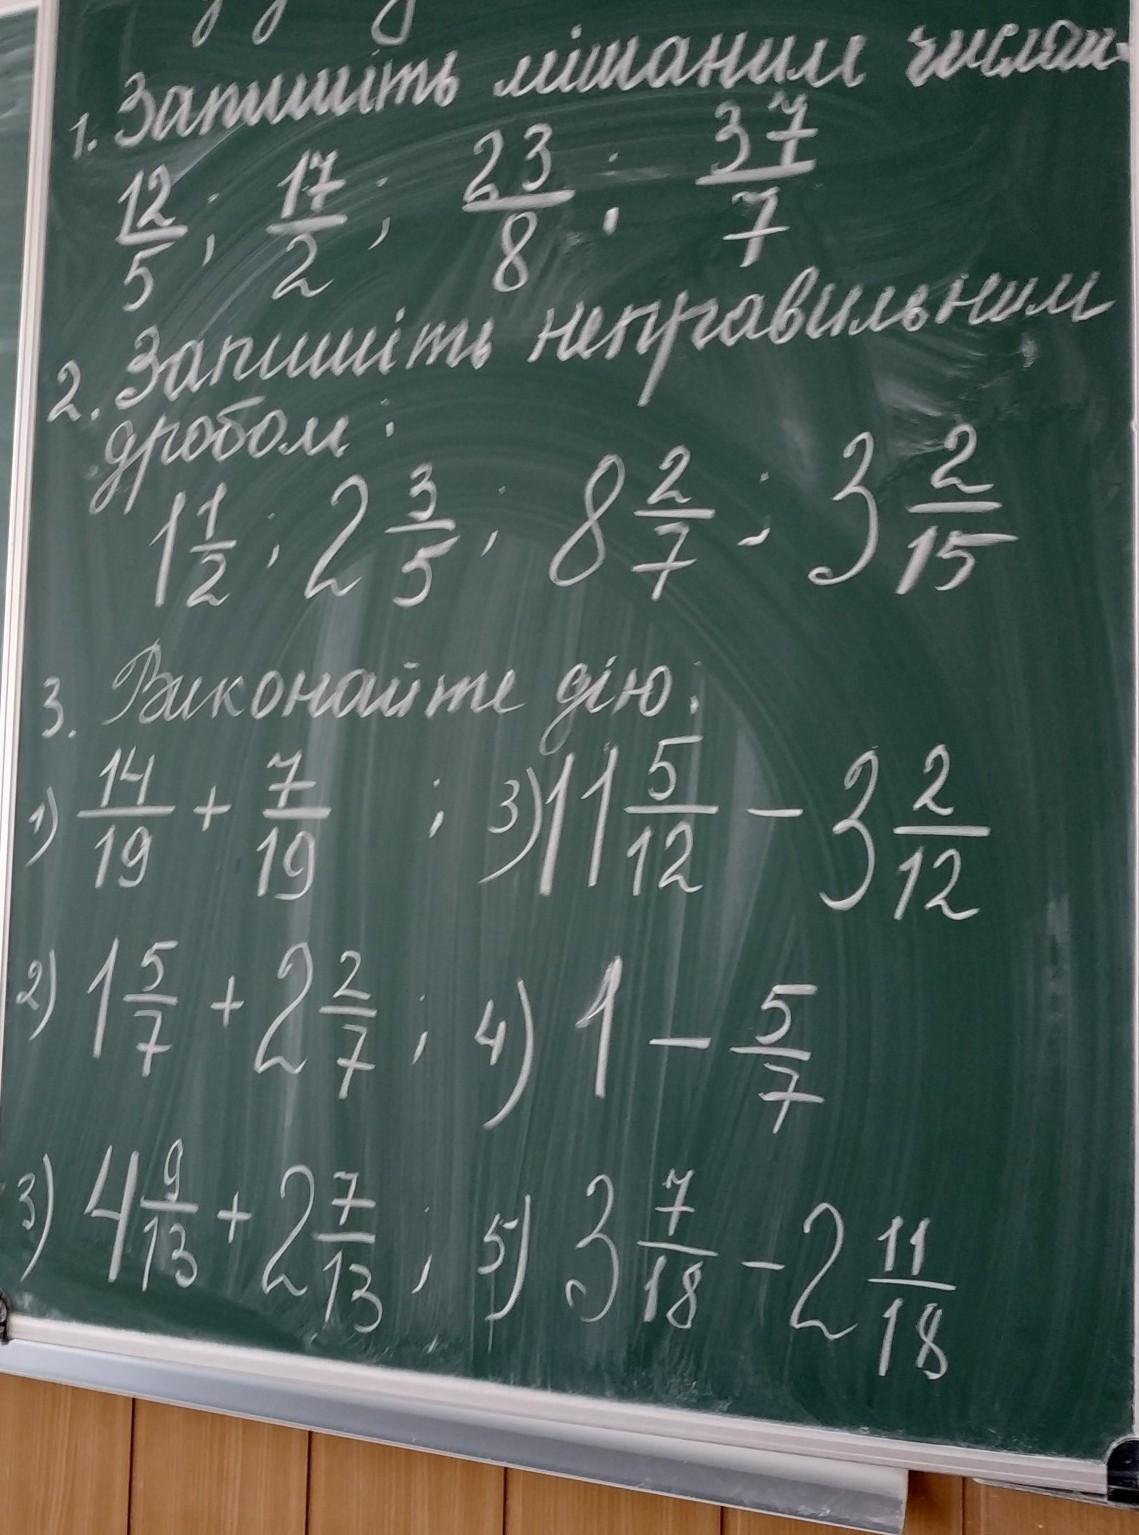 1. Запишіть мішаним числом
12/5 ; 17/2 ; 23/8 ; 37/7
2. Запишіть неправильним
дробом:
1 1/2 ; 2 3/5 ; 8 2/7 ; 3 2/15
3. Виконайте дію:
1) 14/19 + 7/19 ; 3) 11 5/12 - 3 2/12
2) 1 5/7 + 2 2/7 ; 4) 1 - 5/7
3) 4 9/13 + 2 7/13 ; 5) 3 7/18 - 2 11/18